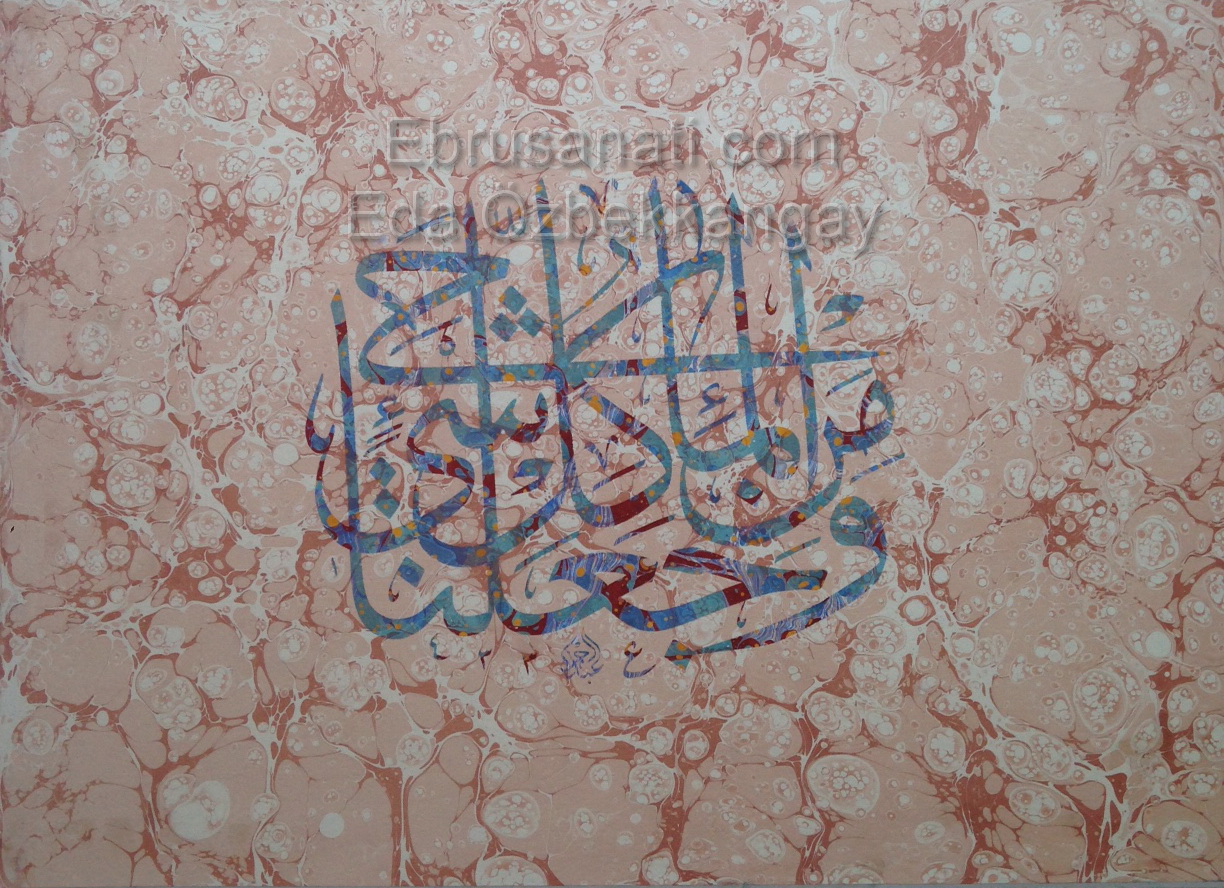 Ebrusanati com
Eda Özbekkangay
وجعلنا
من الماء كل شيء
حي